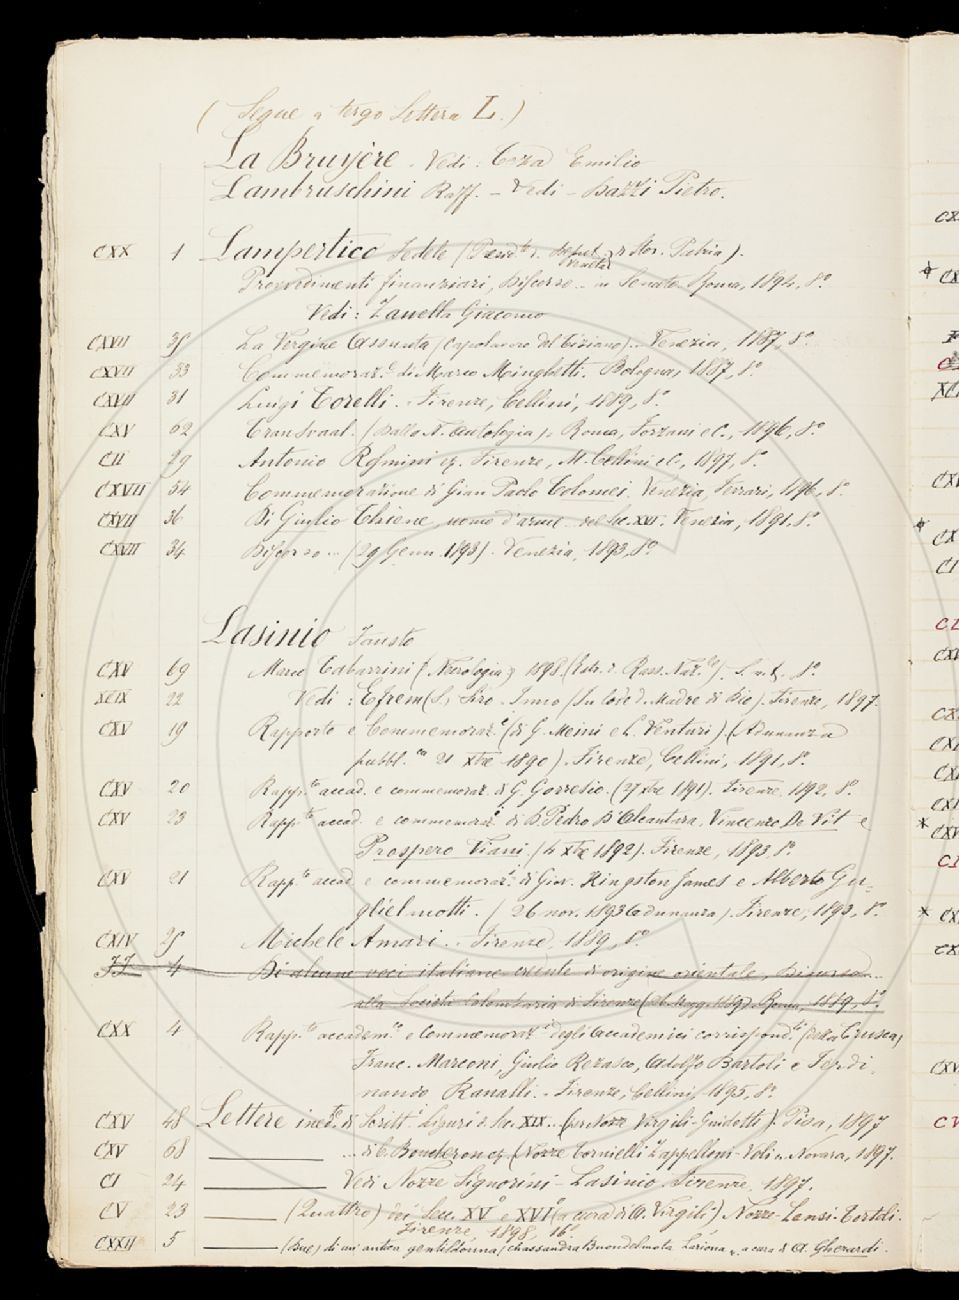 ( Segue a tergo lettera L. )
La Bruyère - Vedi: Teza Emilio
Lambruschini Raff. - Vedi - Dazzi Pietro.
CXX 1 Lampertico Fedele (Presid.te d. Deput. Veneta di Stor. Patria).
Provvedimenti finanziari, Discorso... in Senato. Roma, 1894, 8.°
Vedi: Zanella Giacomo
CXVII 35 La Vergine Assunta (capolavoro del Tiziano). Venezia, 1887, 8.°
CXVII 33 Commemoraz.e di Marco Minghetti. Bologna, 1887, 8.°
CXVII 31 Luigi Torelli. Firenze, Cellini, 1889, 8.°
CXV 62 Transvaal. (Dalla N. Antologia). Roma, Forzani e C., 1896, 8.°
CII 29 Antonio Rosmini Firenze, M. Cellini e C., 1897, 8.°
CXVII 54 Commemorazione di Gian Paolo Tolomei. Venezia, Ferrari, 1896, 8.°
CXVII 36 Di Giulio Thiene, uomo d'arme... nel Sec. XVI. Venezia, 1891, 8.°
CXVII 34 Discorso... (29 Genn. 1893). Venezia, 1893, 8.°
Lasinio Fausto
CXV 69 Marco Tabarrini (Necrologia) 1898. (Estr. d. Rass. Naz.le). S. n. t. 8.°
XCIX 22 Vedi: Efrem (S.) Siro. Inno (In lode d. Madre di Dio). Firenze, 1897.
CXV 19 Rapporto e Commemoraz.e (di G. Meini e L. Venturi) (Adunanza
pubbl.ca 21 Xbre 1890). Firenze, Cellini, 1891, 8.°
CXV 20 Rapp.to accad. e commemoraz. di G. Gorresio. (27 Xbre 1891). Firenze, 1892, 8.°
CXV 23 Rapp.to accad. e commemoraz.e di D. Pedro D'Alcantara, Vincenzo De Vit e
Prospero Viani. (4 Xbre 1892). Firenze, 1893, 8.°
CXV 21 Rapp.to accad. e commemoraz.e di Giov. Kingston James e Alberto Gu-
glielmotti. (26 nov. 1893 adunanza). Firenze, 1893, 8.°
CXIV 25 Michele Amari. Firenze, 1889, 8.°
4 Di alcune voci italiane credute di origine orientale, Discorso...
alla Società Colombaria di Firenze Roma, 1889, 8.°
CXX 4 Rapp.to accadem.co e Commemoraz.e degli Accademici corrispond.ti (della Crusca)
Franc. Marconi, Giulio Rezasco, Adolfo Bartoli e Ferdi-
nando Ranalli. Firenze, Cellini, 1895, 8.°
CXV 48 Lettere ined.te di Scritt.i Liguri d. Sec. XIX... (per Nozze Virgili-Guidotti). Pisa, 1897
CXV 68 ——— ... di C. Boucheron (Nozze Tornielli Zappelloni-Voli). Novara, 1897.
CI 24 ——— Vedi Nozze Signorini-Lasinio Firenze, 1897.
CV 23 ——— (Quattro) dei Sec. XV e XVI (a cura di A. Virgili) Nozze Lensi-Tortoli.
Firenze, 1898, 16.°
CXXII 5 ——— (Due) di un'antica gentildonna (Chassandra Buondelmota a cura di A. Gherardi.